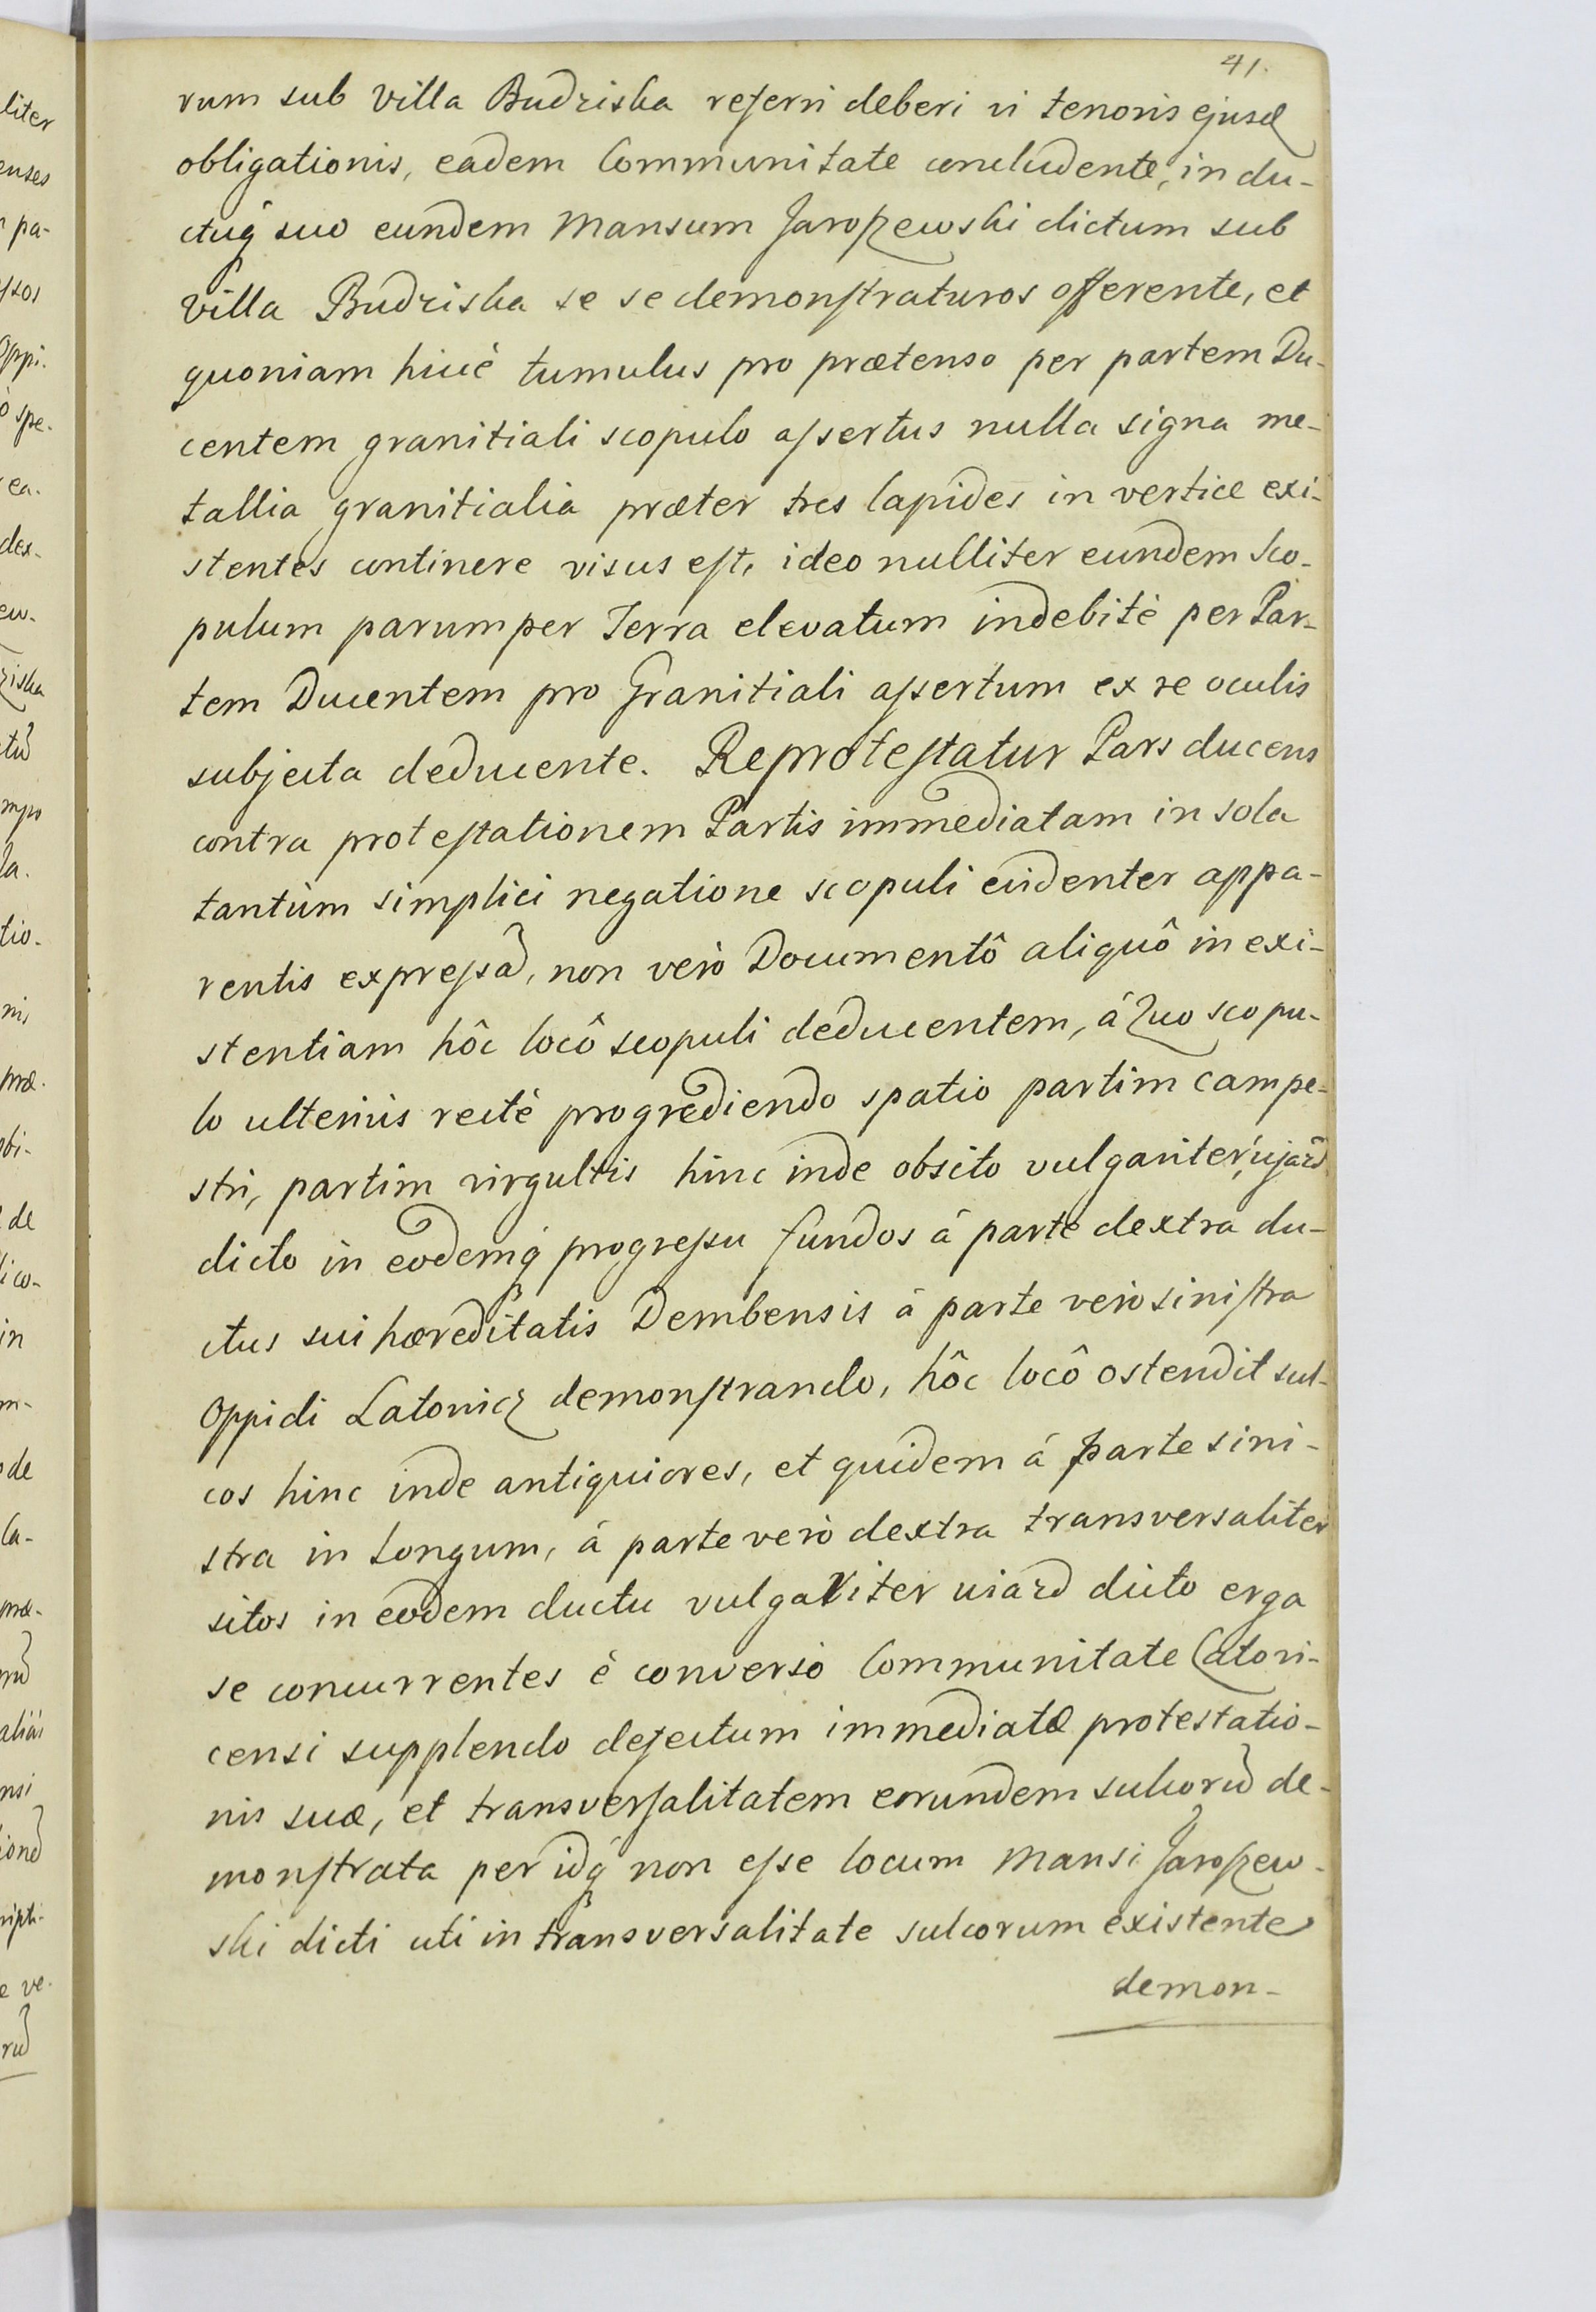 41.
rum sub Villa Budziska referri deberi vi tenoris ejusd
obligationis, eadem Communitate concludente, in du-
ctuq suo eundem Mansum Jaroszewski dictum sub
Villa Budziska se se demonstraturos offerente, et
quoniam hicce tumulus pro prætenso per partem Du-
centem granitiali scopulo assertus nulla signa me-
tallia granitialia præter tres lapides in vertice exi-
stentes continere visus est, ideo nulliter eundem Sco-
pulum parumper Terra elevatum indebitè per Par-
tem Ducentem pro Granitiali assertum ex re oculis
subjecta deducente. Reprotestatur Pars ducens
contra protestationem Partis immediatam in sola
tantùm simplici negatione scopuli evidenter appa-
rentis expressã, non verò Documentô aliquô in exi-
stentiam hôc locô scopuli deducentem, á Quo scopu-
lo ulteriùs rectè progrediendo spatio partim campe-
stri, partim virgultis hinc inde obsito vulgariter ujazd
dicto in eodemq progressu fundos á parte dextra du-
ctus sui hæreditatis Dembensis á parte verò sinistra
Oppidi Latowicz demonstrando, hôc locô ostendit sul-
cos hinc inde antiquiores, et quidem á parte sini-
stra in Longum, á parte verò dextra transversaliter
sitos in eodem ductu vulgariter uiazd dicto erga
se concurrentes è conversò Communitate Latovi-
censi supplendo defectum immediatæ protestatio-
nis suæ, et transversalitatem eorundem sulcorũ de-
monstrata per idq non esse locum Mansi Jaroszew-
ski dicti uti in transversalitate sulcorum existente
demon-